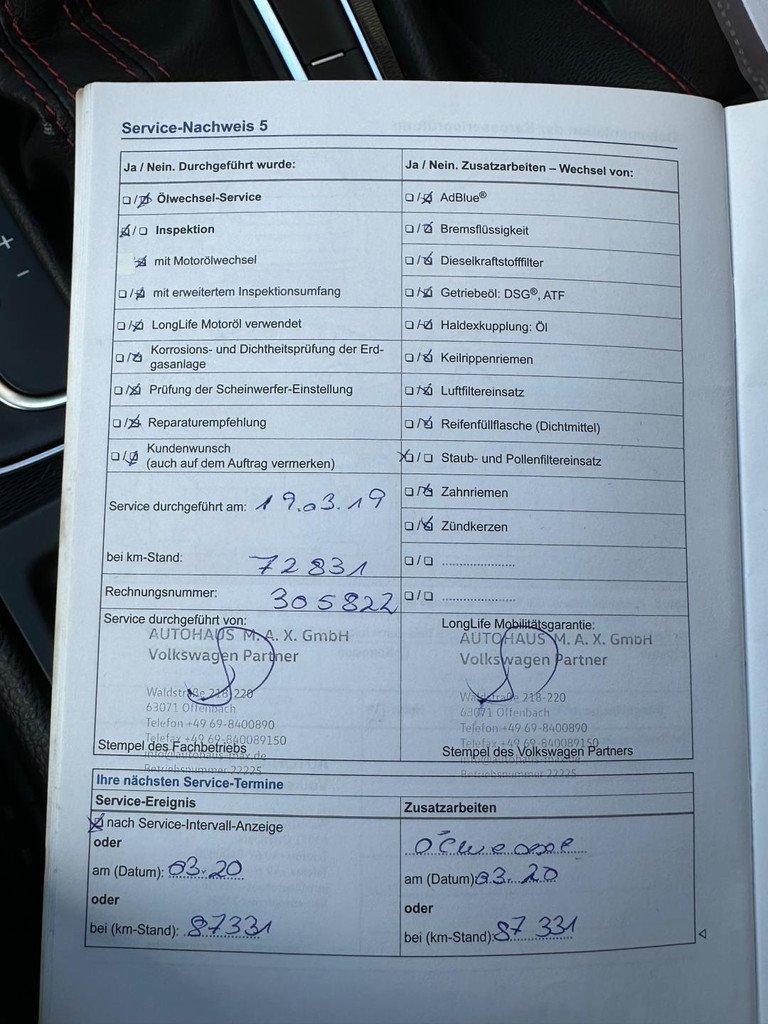 Service-Nachweis 5
Ja / Nein. Durchgeführt wurde:
Ölwechsel-Service
Inspektion
mit Motorölwechsel
mit erweitertem Inspektionsumfang
LongLife Motoröl verwendet
Korrosions- und Dichtheitsprüfung der Erd-
gasanlage
Prüfung der Scheinwerfer-Einstellung
Reparaturempfehlung
Kundenwunsch
(auch auf dem Auftrag vermerken)
Service durchgeführt am: 19.03.19
bei km-Stand: 72831
Rechnungsnummer: 305822
Service durchgeführt von:
AUTOHAUS M. A. X. GmbH
Volkswagen Partner
Waldstraße 218-220
63071 Offenbach
Telefon +49 69-8400890
Telefax +49 69-84089150
Stempel des Fachbetriebs
Betriebsnummer 22225
Ja / Nein. Zusatzarbeiten – Wechsel von:
AdBlue®
Bremsflüssigkeit
Dieselkraftstofffilter
Getriebeöl: DSG®, ATF
Haldexkupplung: Öl
Keilrippenriemen
Luftfiltereinsatz
Reifenfüllflasche (Dichtmittel)
Staub- und Pollenfiltereinsatz
Zahnriemen
Zündkerzen
LongLife Mobilitätsgarantie:
AUTOHAUS M. A. X. GmbH
Volkswagen Partner
Waldstraße 218-220
63071 Offenbach
Telefon +49 69-8400890
Telefax +49 69-84089150
Stempel des Volkswagen Partners
Betriebsnummer 22225
Ihre nächsten Service-Termine
Service-Ereignis
nach Service-Intervall-Anzeige
oder
am (Datum): 03.20
oder
bei (km-Stand): 87331
Zusatzarbeiten
am (Datum): 03.20
oder
bei (km-Stand): 87 331